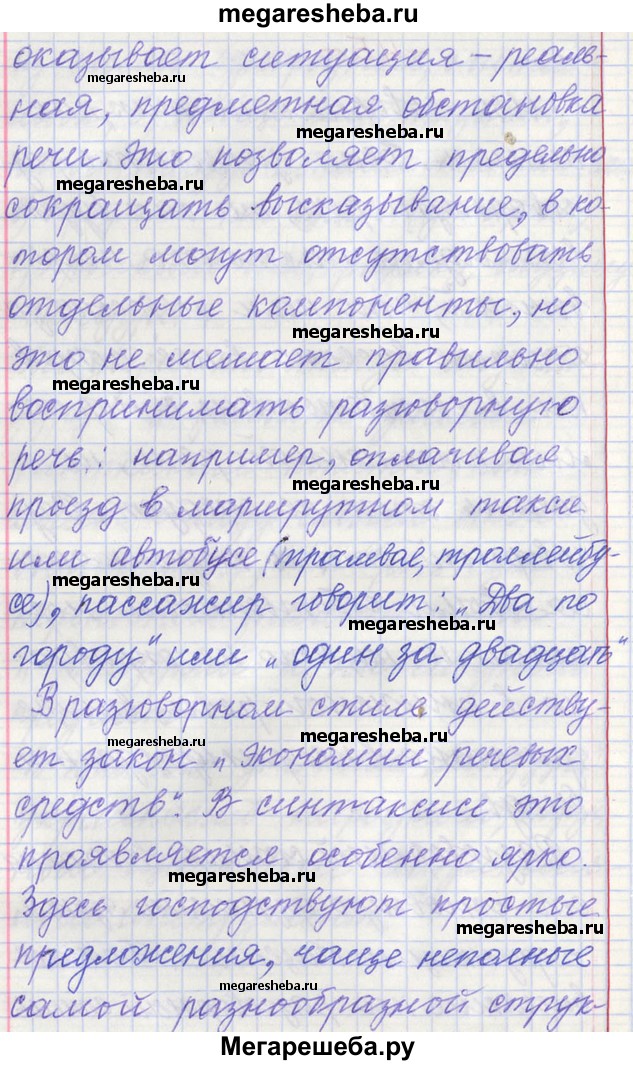 megaresheba.ru
оказывает ситуация – реаль-
megaresheba.ru
ная, предметная обстановка
megaresheba.ru
речи. Это позволяет предельно
megaresheba.ru
сокращать высказывание, в ко-
тором могут отсутствовать
отдельные компоненты, но
megaresheba.ru
это не мешает правильно
megaresheba.ru
воспринимать разговорную
речь: например, оплачивая
megaresheba.ru
проезд в маршрутном такси
или автобусе (трамвае, троллейбу-
megaresheba.ru
се), пассажир говорит: „Два по
megaresheba.ru
городу" или „один за двадцать"
В разговорном стиле действу-
megaresheba.ru
megaresheba.ru
ет закон „экономии речевых
средств". В синтаксисе это
проявляется особенно ярко.
megaresheba.ru
Здесь господствуют простые
megaresheba.ru
предложения, чаще неполные
megaresheba.ru
самой разнообразной струк-
Мегарешеба.ру